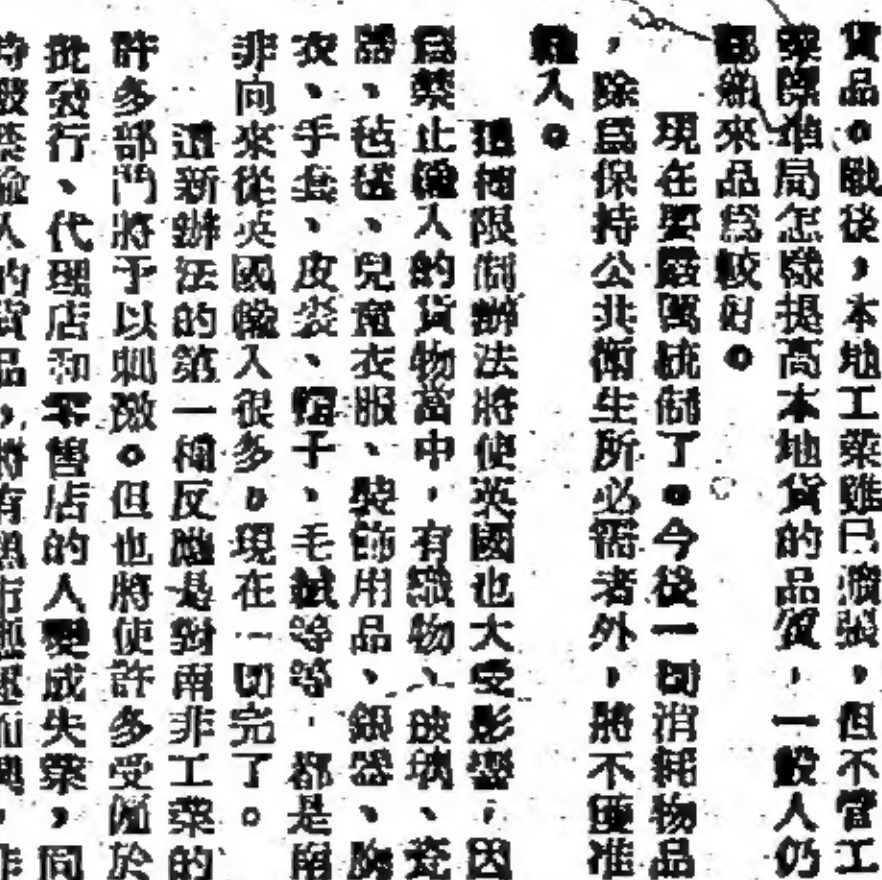 貨品。戰後,本地工業雖已擴張,但不管工
業標准局怎樣提高本地貨的品質,一般人仍
舶來品爲較好。
現在要嚴厲統制了。今後一切消耗物品
,除爲保持公共衛生所必需者外,將不復准
輸入。
這種限制辦法將使英國也大受影響,因
爲禁止輸入的貨物當中,有織物、玻璃、瓷
器、毡毯、兒童衣服、裝飾用品、銀器、胸
衣、手套、皮裘、帽子、毛絨等等,都是南
非向來從英國輸入很多。現在一切完了。
這新辦法的第一種反應是對南非工業的
許多部門將予以刺激。但也將使許多受僱於
批發行、代理店和零售店的人變成失業,同
禁輸入的貨品,將有黑市